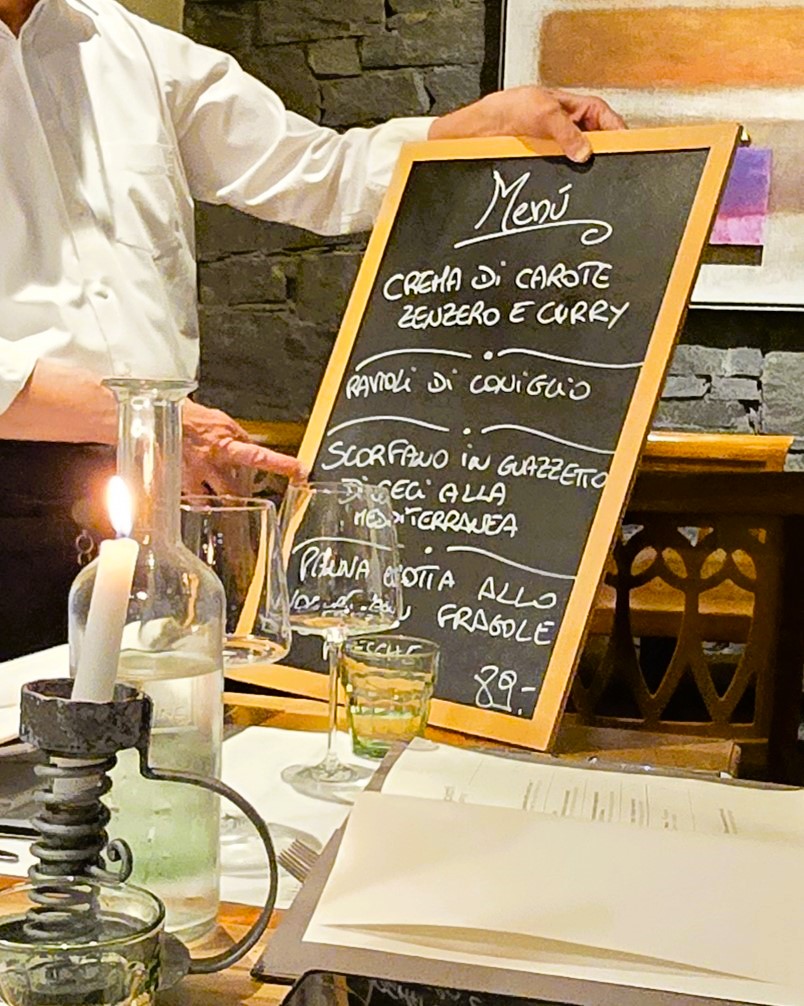 Menú
CREMA Di CAROTE
ZENZERO E CURRY
RAVIOLi Di CONiGLiO
SCORFANO iN GUAZZETTO
Di CECi ALLA
MEDiTERRANEA
PANNA COTTA ALLO
FRAGOLE
FRESCHE
89.-